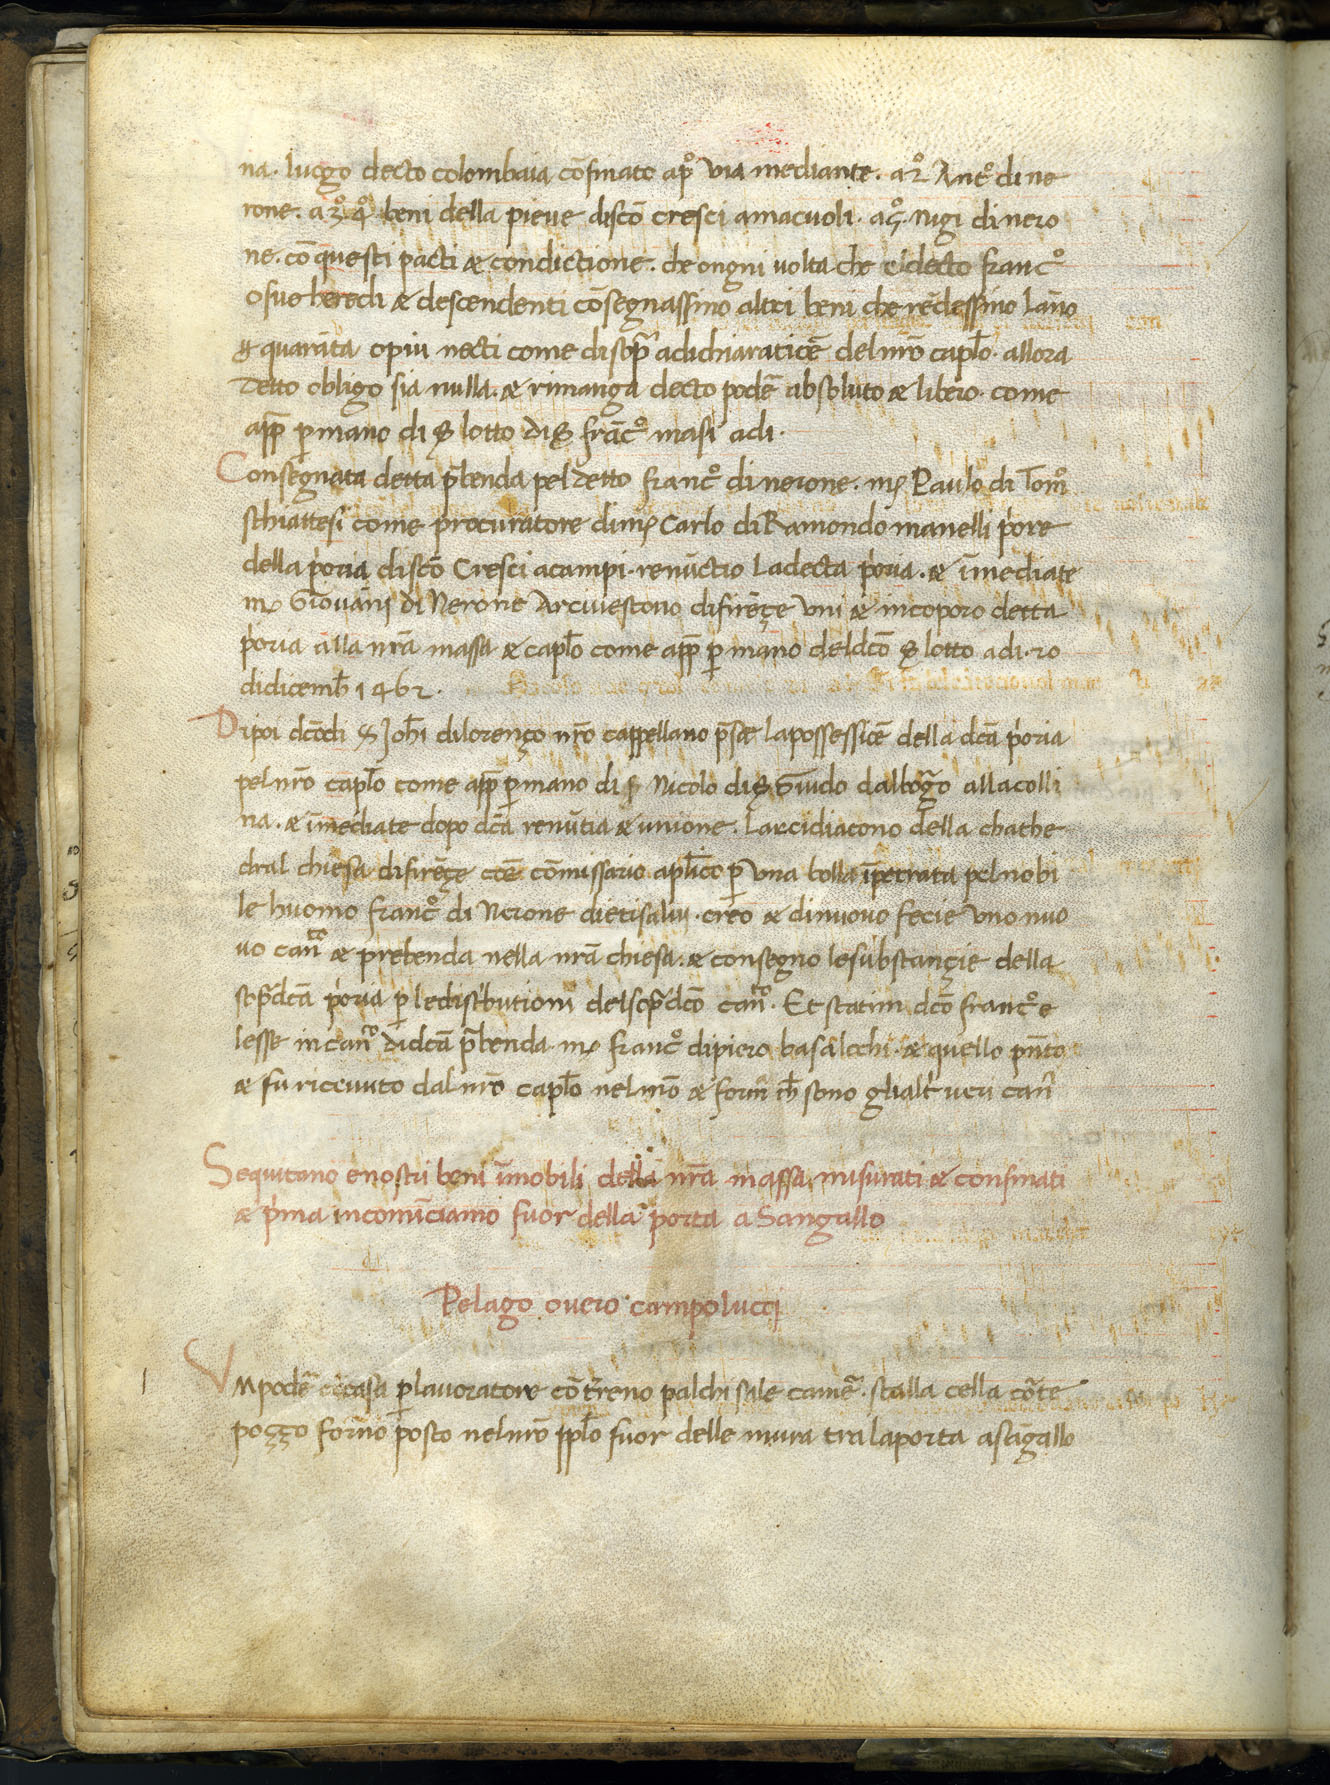 na. luogo decto colombaia cōfinato apº via mediante. a 2º Antº di ne
rone. a 3º 4º beni della pieve di sc̄o cresci amacuoli. a 5º. nigi di nero
ne. cō questi pacti & condictione. che ongni volta che el decto francº
o sue heredi & descendenti cōsegnassino altri beni che rēdessino lāno
quarāta o piu necti come di sop̄ a dichiaraticē del nr̄o capl̄o. allora
detto obligo sia nulla. & rimanga decto podē absoluto & libero. come
app̄ p mano di S lotto di S frācº masi adi.
Consegnata detta p̄benda pel detto francº di nerone. mͬ Paulo di Tomº
schiattesi come procuratore di mͬ Carlo di Ramondo manelli p̓ore
della p̓oria di sc̄o Cresci acampi. renūctio la decta p̓oria. & īmediate
mͬ Giovāni di Nerone Arcivescovo di firēçe uni & incoporo detta
p̓oria alla nr̄a massa & capl̄o come app̄ p mano del dc̄o S lotto adi. 20
di dicemb̄ 1462.
Dipoi dc̄o di S Joh̄i di lorenço nr̄o cappellano p̄se la possessiōe della dc̄a p̓oria
pel nr̄o capl̄o come app̄ p mano di S Nicolo di S Guido dal bogo alla colli
na. & īmediate dopo dc̄a renūtia & unione. Larcidiacono della chathe
dral chiesa di firēçe coē cōmissario apl̄ico p una bolla īpetrata pel nobi
le huomo francº di Nerone dietisalvi. creo & di nuovo fecie uno nuo
vo canco & prebenda nella nr̄a chiesa. & consegno le substançie della
sop̄dc̄a p̓oria p le distributioni del sop̄dc̄o canco. Et statim dc̄o francº e
lesse in canco di dc̄a p̄benda. mͬ francº di piero basalechi. & quello pn̄to
& fu ricevuto dal nr̄o capl̄o nel mō & form̄ ch̄ sono gli alt̓ veri can̄
Sequitano e nostri beni īmobili della nr̄a massa misurati & confinati
& p̓ma incominciamo fuor della porta a Sangallo
Pelago overo campolucci
1
Vm podē cō casa p lavoratore cō t̄reno palchi sale camē. stalla cella cōte
poççο forno posto nel nr̄o ppl̄o fuor delle mura tra la porta a sāgallo